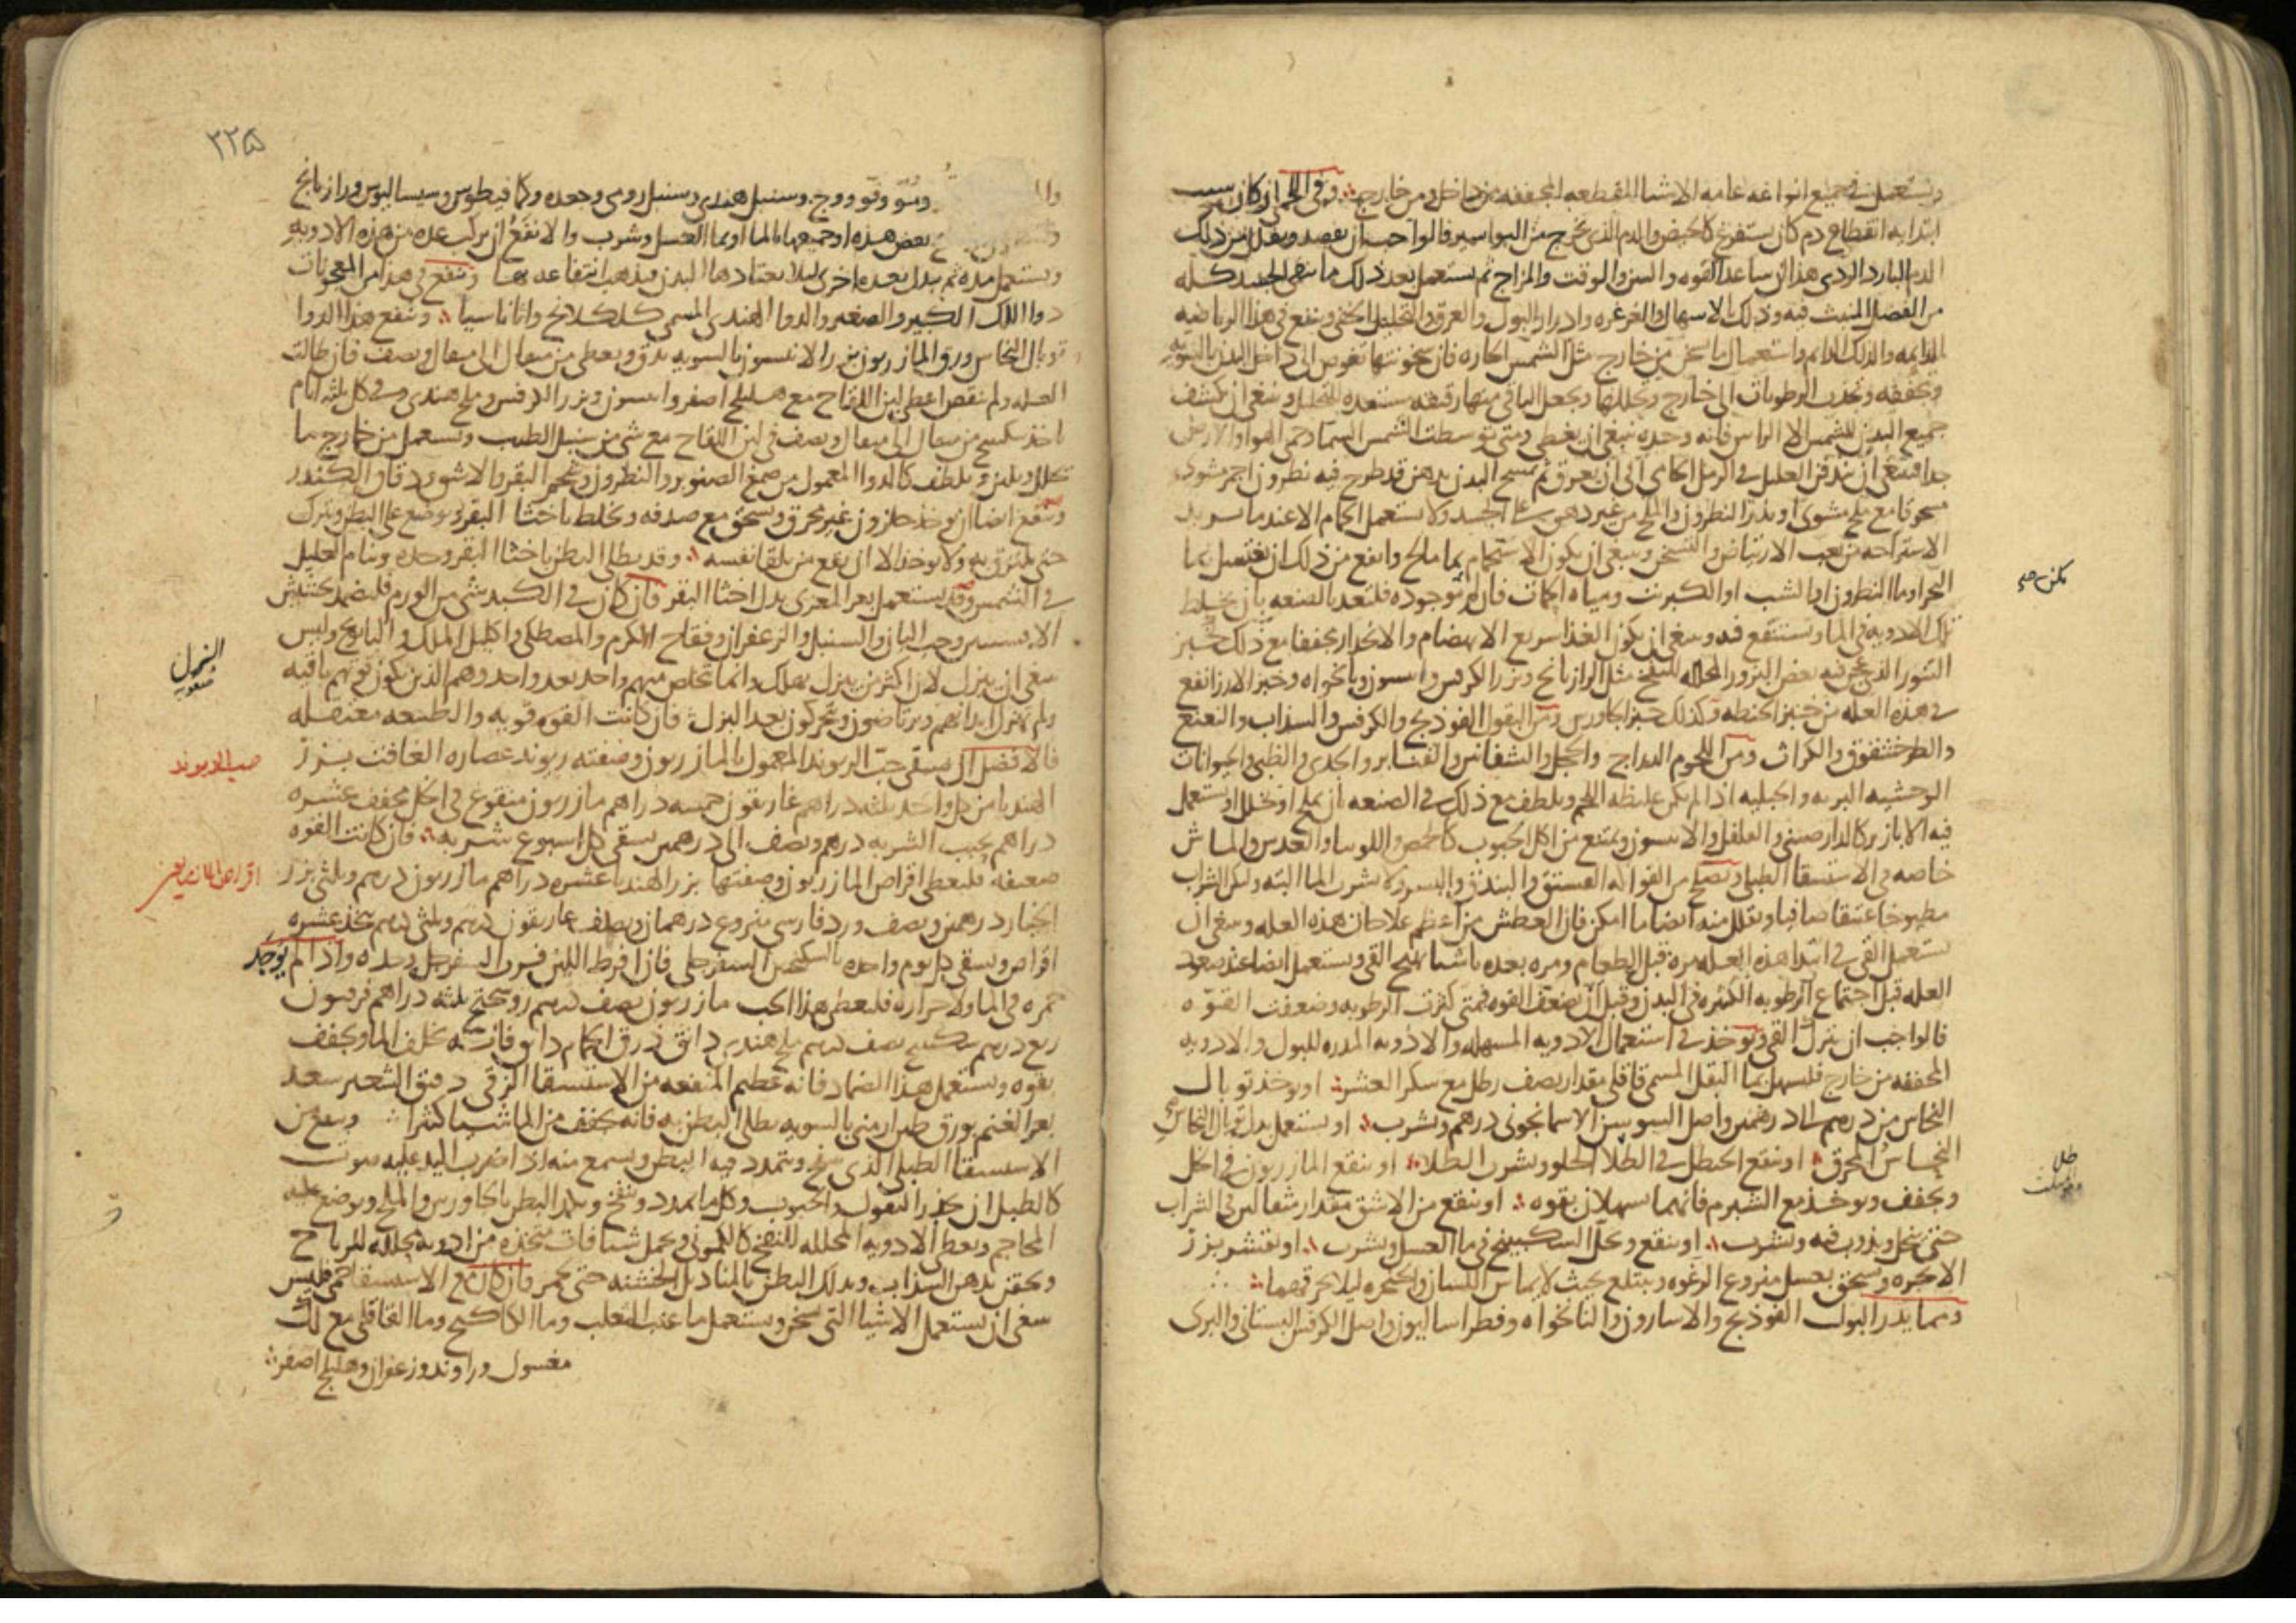 ويستعمل في جميع انواعه عامه الاشيا المقطعه المجففه من داخل ومن خارج وفي اللحمي ان كان سبب
ابتدايه انقطاع دم كان يستفرغ كالحيض والدم الذي يخرج من البواسير فالواجب ان يفصد ويقلل من ذلك
الدم البارد الردي هذا ان ساعد القوه والسن والوقت والمزاج ثم يستعمل بعد ذلك ما ينقي الجسد كله
من الفضل المنبث فيه وذلك الاسهال والغرغره وادرار البول والعرق والتحليل الخفي وينفع في هذا الرياضيه
الدايمه والدلك الدايم واستعمال ما يسخن من خارج مثل الشمس الحاره فان سخونتها تغوص الى داخل البدن بالسويه
وتجففه وتجذب الرطوبات الى خارج وتحللها وتجعل الباقي منها رقيقه مستعده للتحلل وينبغي ان يكشف
جميع البدن للشمس الا الراس فانه وحده ينبغي ان يغطى ومتى توسطت الشمس السما وحمي الهوا والارض
جدا فينبغي ان يندفن العليل في الرمل الحامي الى ان يعرق ثم يمسح البدن بدهن قد طرح فيه نطرون احمر مشوي
مسحوقا مع ملح مشوي او يذر النطرون والملح من غير دهن على الجسد ولا يستعمل الحمام الا عند ما يريد
الاستراحه من تعب الارتياض والتسخن وينبغي ان يكون الاستحمام بما مالح وانفع من ذلك ان يغتسل بما
البحر او ما النطرون او الشب او الكبريت ومياه الحمات فان لم توجد فليتعد بالصنعه بان يخلط
تلك الادويه في الما ويستنقع فيه وينبغي ان يكون الغذا سريع الانهضام والانحدار مجففا مع ذلك خبز
التنور الذي عجن فيه بعض البزور المحلله للنفخ مثل الرازيانج وبزر الكرفس وانيسون ونانخواه وخبز الارز انفع
في هذه العله من خبز الحنطه وكذلك خبز الجاورس ومن البقول الفوذنج والكرفس والسذاب والنعنع
والطرخشقوق والكراث ومن اللحوم الدراج والحجل والشفانين والقنابر والجدي والظبي والحيوانات
الوحشيه البريه والجبليه اذا لم يكن غليظه اللحم ويلطف مع ذلك في الصنعه بان يملح او يخلل او يستعمل
فيه الابازير كالدارصيني والفلفل والانيسون ويمتنع من اكل الحبوب كالحمص واللوبيا والعدس والماش
خاصه في الاستسقا الطبلي ويصلح من الفواكه الفستق والبندق والبسر ولا يشرب الما البته ولكن الشراب
مطبوخا عتيقا صافيا ويقلل منه ايضا ما امكن فان العطش من اعظم علاجات هذه العله وينبغي ان
يستعمل القي في ابتدا هذه العله مره قبل الطعام ومره بعده باشيا تهيج القي ويستعمل ايضا عند صعود
العله قبل اجتماع الرطوبه الكثيره في البدن وقبل ان تضعف القوه فمتى كثرت الرطوبه وضعفت القوه
فالواجب ان يترك القي ويوخذ في استعمال الادويه المسهله والادويه المدره للبول والادويه
المجففه من خارج فليسهل بما البقل المسمى قاقلي مقدار نصف رطل مع سكر العشر او يوخذ توبال
النحاس من درهم الى درهمين واصل السوسن الاسمانجوني درهم ويشرب او يستعمل بدل توبال النحاس
النحاس المحرق او ينقع الحنظل في الطلا الحلو ويشرب الطلا او ينقع المازريون في الخل
ويجفف ويوخذ مع الشبرم فانهما يسهلان بقوه او ينقع من الاشق مقدار مثقالين في الشراب
حتى ينحل ويذوب فيه ويشرب او ينقع ويحل السكبينج في ما العسل ويشرب او يقشر بزر
الانجره ويسحق بعسل منزوع الرغوه ويبتلع بحيث لا يماس اللسان والحنجره ليلا يحرقهما
ومما يدر البول الفوذنج والاسارون والنانخواه وفطراساليون واصل الكرفس البستاني والبري
٣٢٥
ومو وفو ووج وسنبل هندي وسنبل رومي وجعده وكمافيطوس وسيساليوس ورازيانج
بعض هذه او جميعها بالما او بما العسل وشرب والانفع ان يركب عده من هذه الادويه
ويستعمل مده ثم يبدل بعده اخرى ليلا يعتادها البدن فيذهب انتفاعه بها وينفع في هذا من المعجونات
دوا اللك الكبير والصغير والدوا الهندي المسمى كلكلانج واثاناسيا وينفع هذا الدوا
توبال النحاس ورق المازريون بزر الانيسون بالسويه يدق ويعطى من مثقال الى مثقال ونصف فان طالت
العله ولم تنقص اعطي لبن اللقاح مع هليلج اصفر وانيسون وبزر الكرفس وملح هندي وفي كل ثلثه ايام
ياخذ سكبينج من مثقال الى مثقال ونصف في لبن اللقاح مع شي من سنبل الطيب ويستعمل من خارج ما
يحلل ويلين ويلطف كالدوا المعمول من صمغ الصنوبر والنطرون وشحم البقر والاشق ودقاق الكندر
وينفع ايضا ان يوخذ حلزون غير محرق ويسحق مع صدفه ويخلط باخثا البقر ويوضع على البطن ويترك
حتى يلتزق به ولا يوخذ الا ان يقع من تلقا نفسه وقد يطلى البطن باخثا البقر وحده وينام العليل
في الشمس وقد يستعمل بعر المعزى بدل اخثا البقر فان كان في الكبد شي من الورم فليضمد بحشيش
الافسنتين وحب البان والسنبل والزعفران وفقاح الكرم والمصطكى واكليل الملك والبابونج وليس
ينبغي ان يبزل لان اكثر من يبزل يهلك وانما يتخلص منهم واحد بعد واحد وهم الذين يكون قوتهم باقيه
ولم تهزل ابدانهم ويرتاضون ويتحركون بعد البزل فان كانت القوه قويه والطبيعه معتقله
فالافضل ان يسقى حب الريوند المعمول بالمازريون وصفته ريوند عصاره الغافت بزر
الهندبا من كل واحد ثلثه دراهم غاريقون خمسه دراهم مازريون منقوع في الخل مجفف عشره
دراهم يحبب الشربه درهم ونصف الى درهمين يسقى كل اسبوع شربه فان كانت القوه
ضعيفه فليعطى اقراص المازريون وصفتها بزر الهندبا عشره دراهم مازريون درهم وثلثي بزر
الخيار درهمين ونصف ورد فارسي منزوع درهمان ونصف غاريقون درهم وثلثي درهم يتخذ عشره
اقراص ويسقى كل يوم واحده بالسكنجبين السفرجلي فان افرط اللين فبرب السفرجل وحده واذا لم يوجد
حمره في الما ولا حراره فليعطى هذا الحب مازريون نصف درهم روسختج ثلثه دراهم فربيون
ربع درهم سكبينج نصف درهم ملح هندي دانق ذرق الحمام دانق فانه يخلف الما ويجفف
بقوه ويستعمل هذا الضماد فانه عظيم المنفعه من الاستسقا الزقي دقيق الشعير سعد
بعر الغنم بورق طين ارمني بالسويه يطلى البطن به فانه يجفف من الما شيا كثيرا وينفع من
الاستسقا الطبلي الذي ينفخ ويتمدد فيه البطن ويسمع منه اذا ضرب اليد عليه صوت
كالطبل ان يحذر البقول والحبوب وكل ما يمدد وينفخ ويكمد البطن بالجاورس والملح ويوضع عليه
المحاجم ويعطى الادويه المحلله للنفخ كالكموني ويحمل شيافات متخذه من ادويه محلله للرياح
ويحقن بدهن السذاب ويدلك البطن بالمناديل الخشنه حتى يحمر فان كان مع الاستسقا حمى فليس
ينبغي ان يستعمل الاشيا التي تسخن ويستعمل ما عنب الثعلب وما الكاكنج وما القاقلي مع لك
مغسول وراوند وزعفران وهليلج اصفر
البزل
صعوبه
حب الريوند
اقراص المازريون